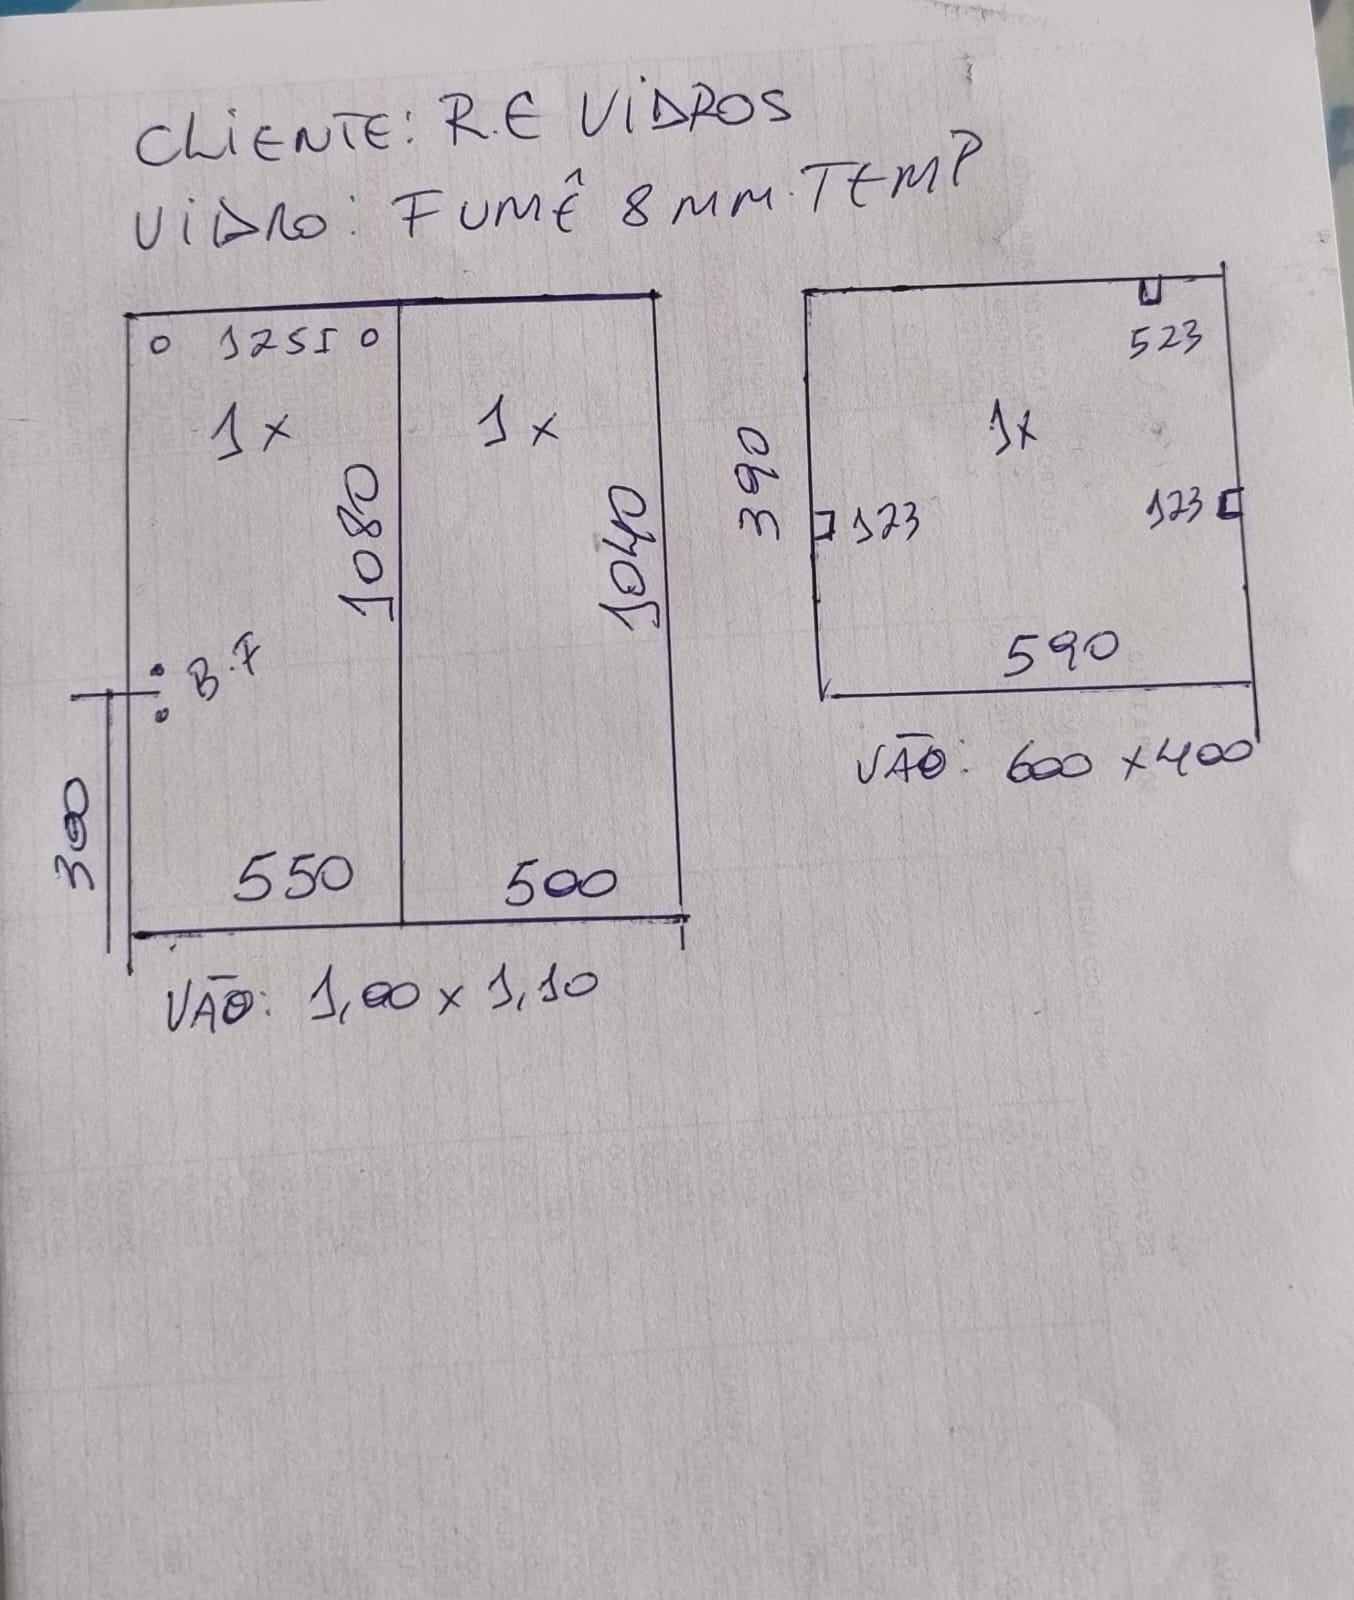 CLIENTE: R.E VIDROS
VIDRO: FUMÊ 8MM.TEMP
1
1x
1x
1080
1040
B.F
300
550
500
VÃO: 1,00 x 1,10
523
1x
390
123
123
590
VÃO: 600 x 400